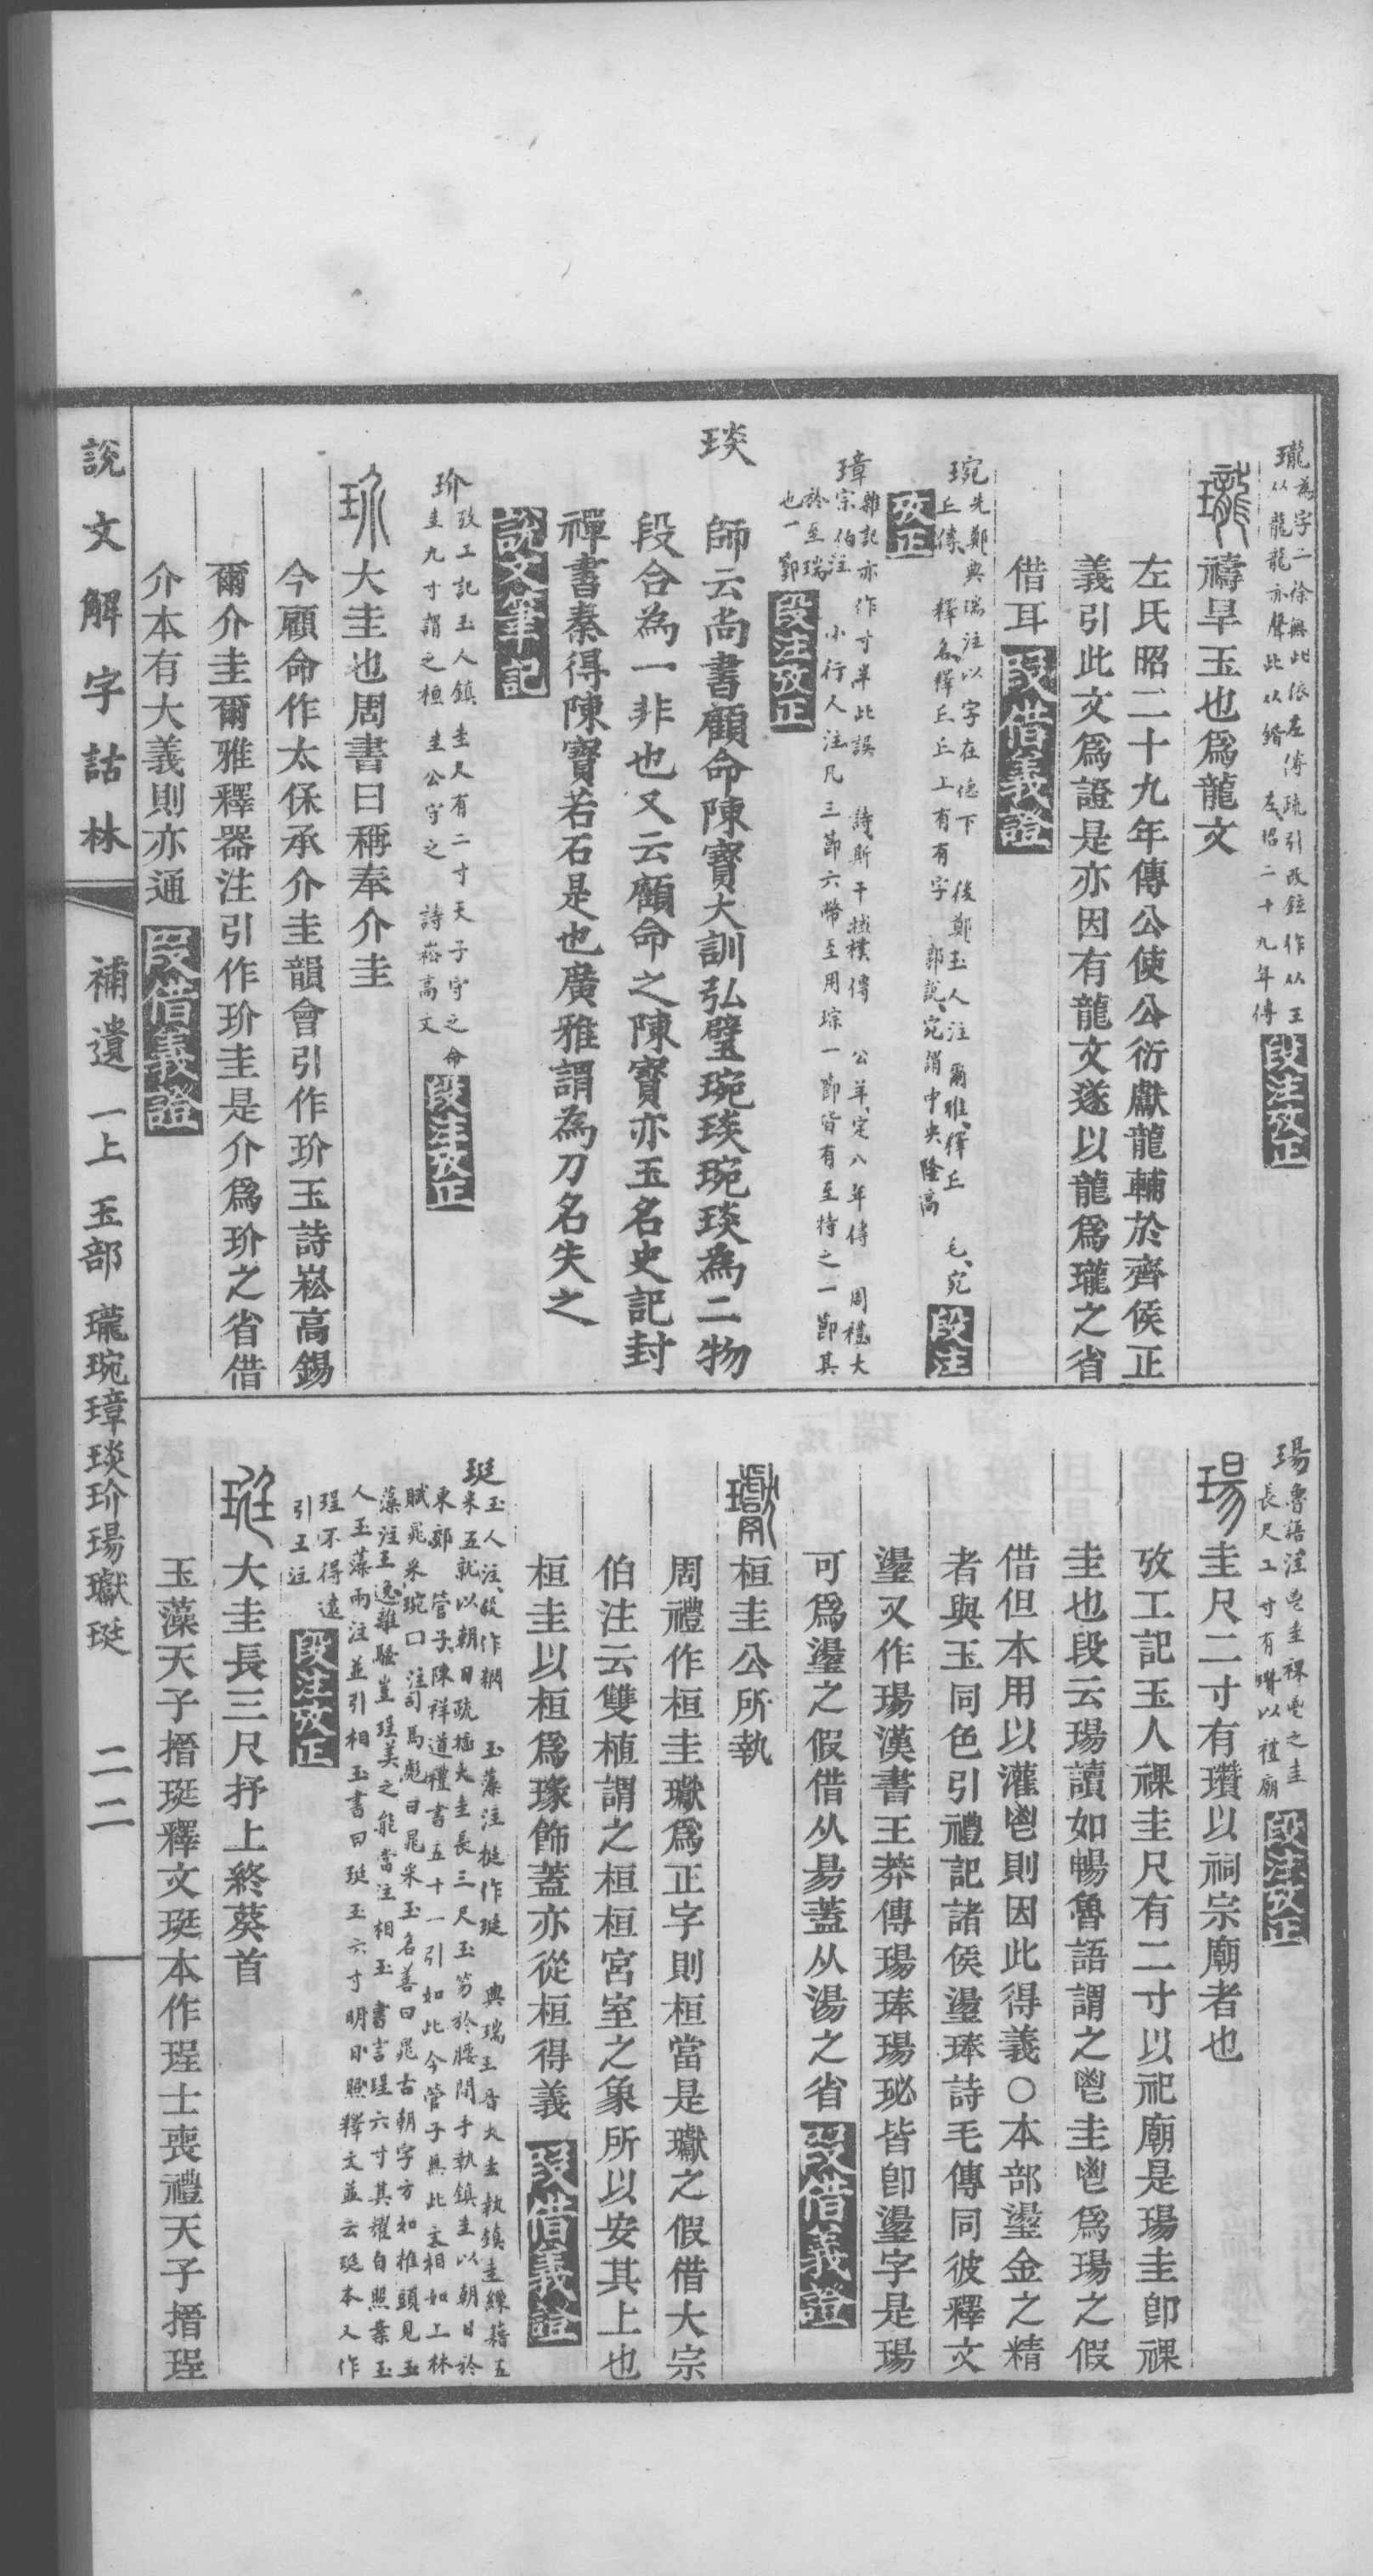 瓏爲字二徐無此依左傳疏引改鉉作从玉
从龍龍亦聲此从鍇 左昭二十九年傳 段注攷正
瓏禱旱玉也爲龍文
左氏昭二十九年傳公使公衍獻龍輔於齊侯正
義引此文爲證是亦因有龍文遂以龍爲瓏之省
借耳 段借義證
琬先鄭典瑞注以字在德下 後鄭玉人注 爾雅釋丘 毛宛
丘傳 釋名釋丘丘上有有字 郭說宛謂中央隆高 段注
攷正
璋雜記亦作寸半此誤 詩斯干棫樸傳 公羊定八年傳 周禮大
宗伯注 小行人注凡三節六幣至用琮一節皆有至特之一節其
於至瑞
也一節 段注攷正
琰
師云尚書顧命陳寶大訓弘璧琬琰琬琰為二物
段合為一非也又云顧命之陳寶亦玉名史記封
禪書秦得陳寶若石是也廣雅謂為刀名失之
說文筆記
玠攷工記玉人鎮圭尺有二寸天子守之命
圭九寸謂之桓圭公守之 詩崧高文 段注攷正
玠大圭也周書曰稱奉介圭
今顧命作太保承介圭韻會引作玠玉詩崧高錫
爾介圭爾雅釋器注引作玠圭是介爲玠之省借
介本有大義則亦通 段借義證
瑒魯語注鬯圭祼鬯之圭
長尺二寸有瓚以禮廟 段注攷正
瑒圭尺二寸有瓚以祠宗廟者也
攷工記玉人祼圭尺有二寸以祀廟是瑒圭卽祼
圭也段云瑒讀如暢魯語謂之鬯圭鬯爲瑒之假
借但本用以灌鬯則因此得義○本部璗金之精
者與玉同色引禮記諸侯璗琫詩毛傳同彼釋文
璗又作瑒漢書王莽傳瑒琫瑒珌皆卽璗字是瑒
可爲璗之假借从昜蓋从湯之省 段借義證
瓛桓圭公所執
周禮作桓圭瓛爲正字則桓當是瓛之假借大宗
伯注云雙植謂之桓桓宮室之象所以安其上也
桓圭以桓爲瑑飾蓋亦從桓得義 段借義證
珽玉人注 玉藻注挺作珽 典瑞王晉大圭執鎮圭繅藉五
采五就以朝日疏搢大圭長三尺玉笏於腰間手執鎮圭以朝日於
東郊 管子 陳祥道禮書五十一引如此今管子無此文相如上林
賦晁采琬口 注司馬彪曰晁采玉名善曰晁古朝字方如椎頭見玉
藻注王逸離騷豈珵美之能當注相玉書言珵六寸其耀自照案玉
人玉藻兩注並引相玉書曰珽玉六寸明自照釋文並云珽本又作
珵不得遠
引王注 段注攷正
珽大圭長三尺抒上終葵首
玉藻天子搢珽釋文珽本作珵士喪禮天子搢珵
說文解字詁林 補遺一上 玉部 瓏琬璋琰玠瑒瓛珽 二二